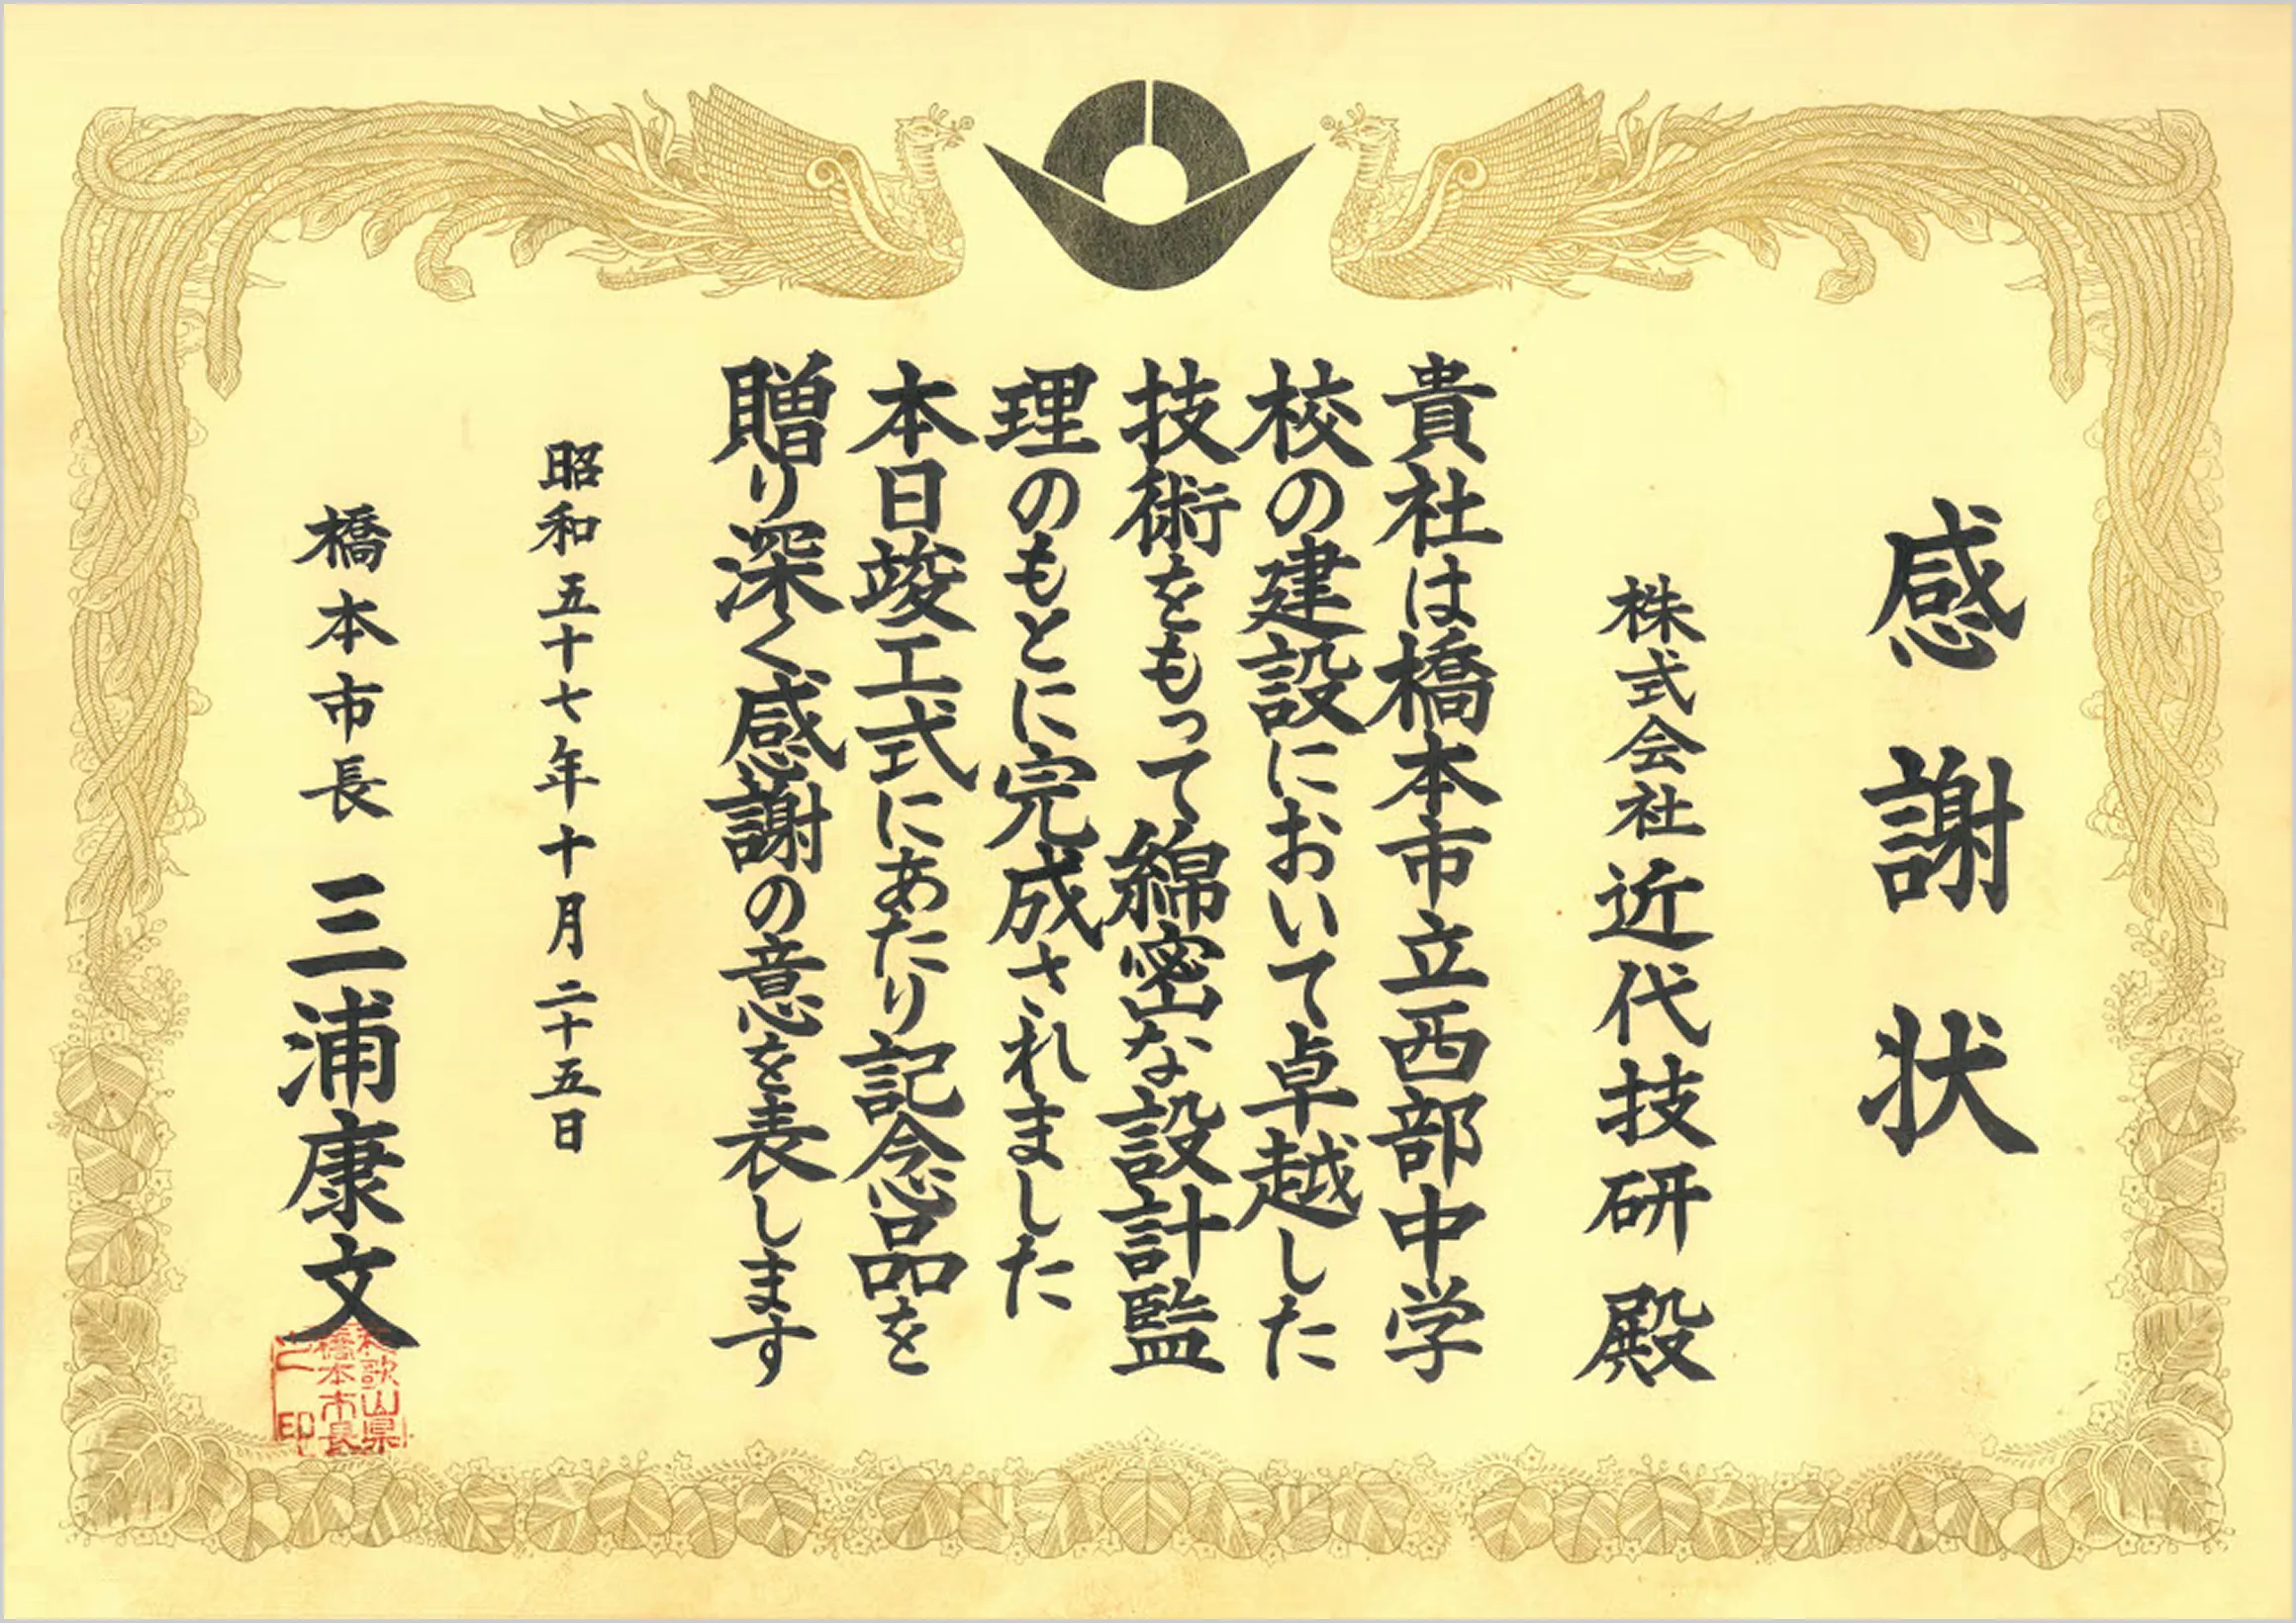 感謝状
株式会社近代技研 殿
貴社は橋本市立西部中学
校の建設において卓越した
技術をもって綿密な設計監
理のもとに完成されました
本日竣工式にあたり記念品を
贈り深く感謝の意を表します
昭和五十七年十月二十五日
橋本市長 三浦康文
和歌山県
橋本市長
之印